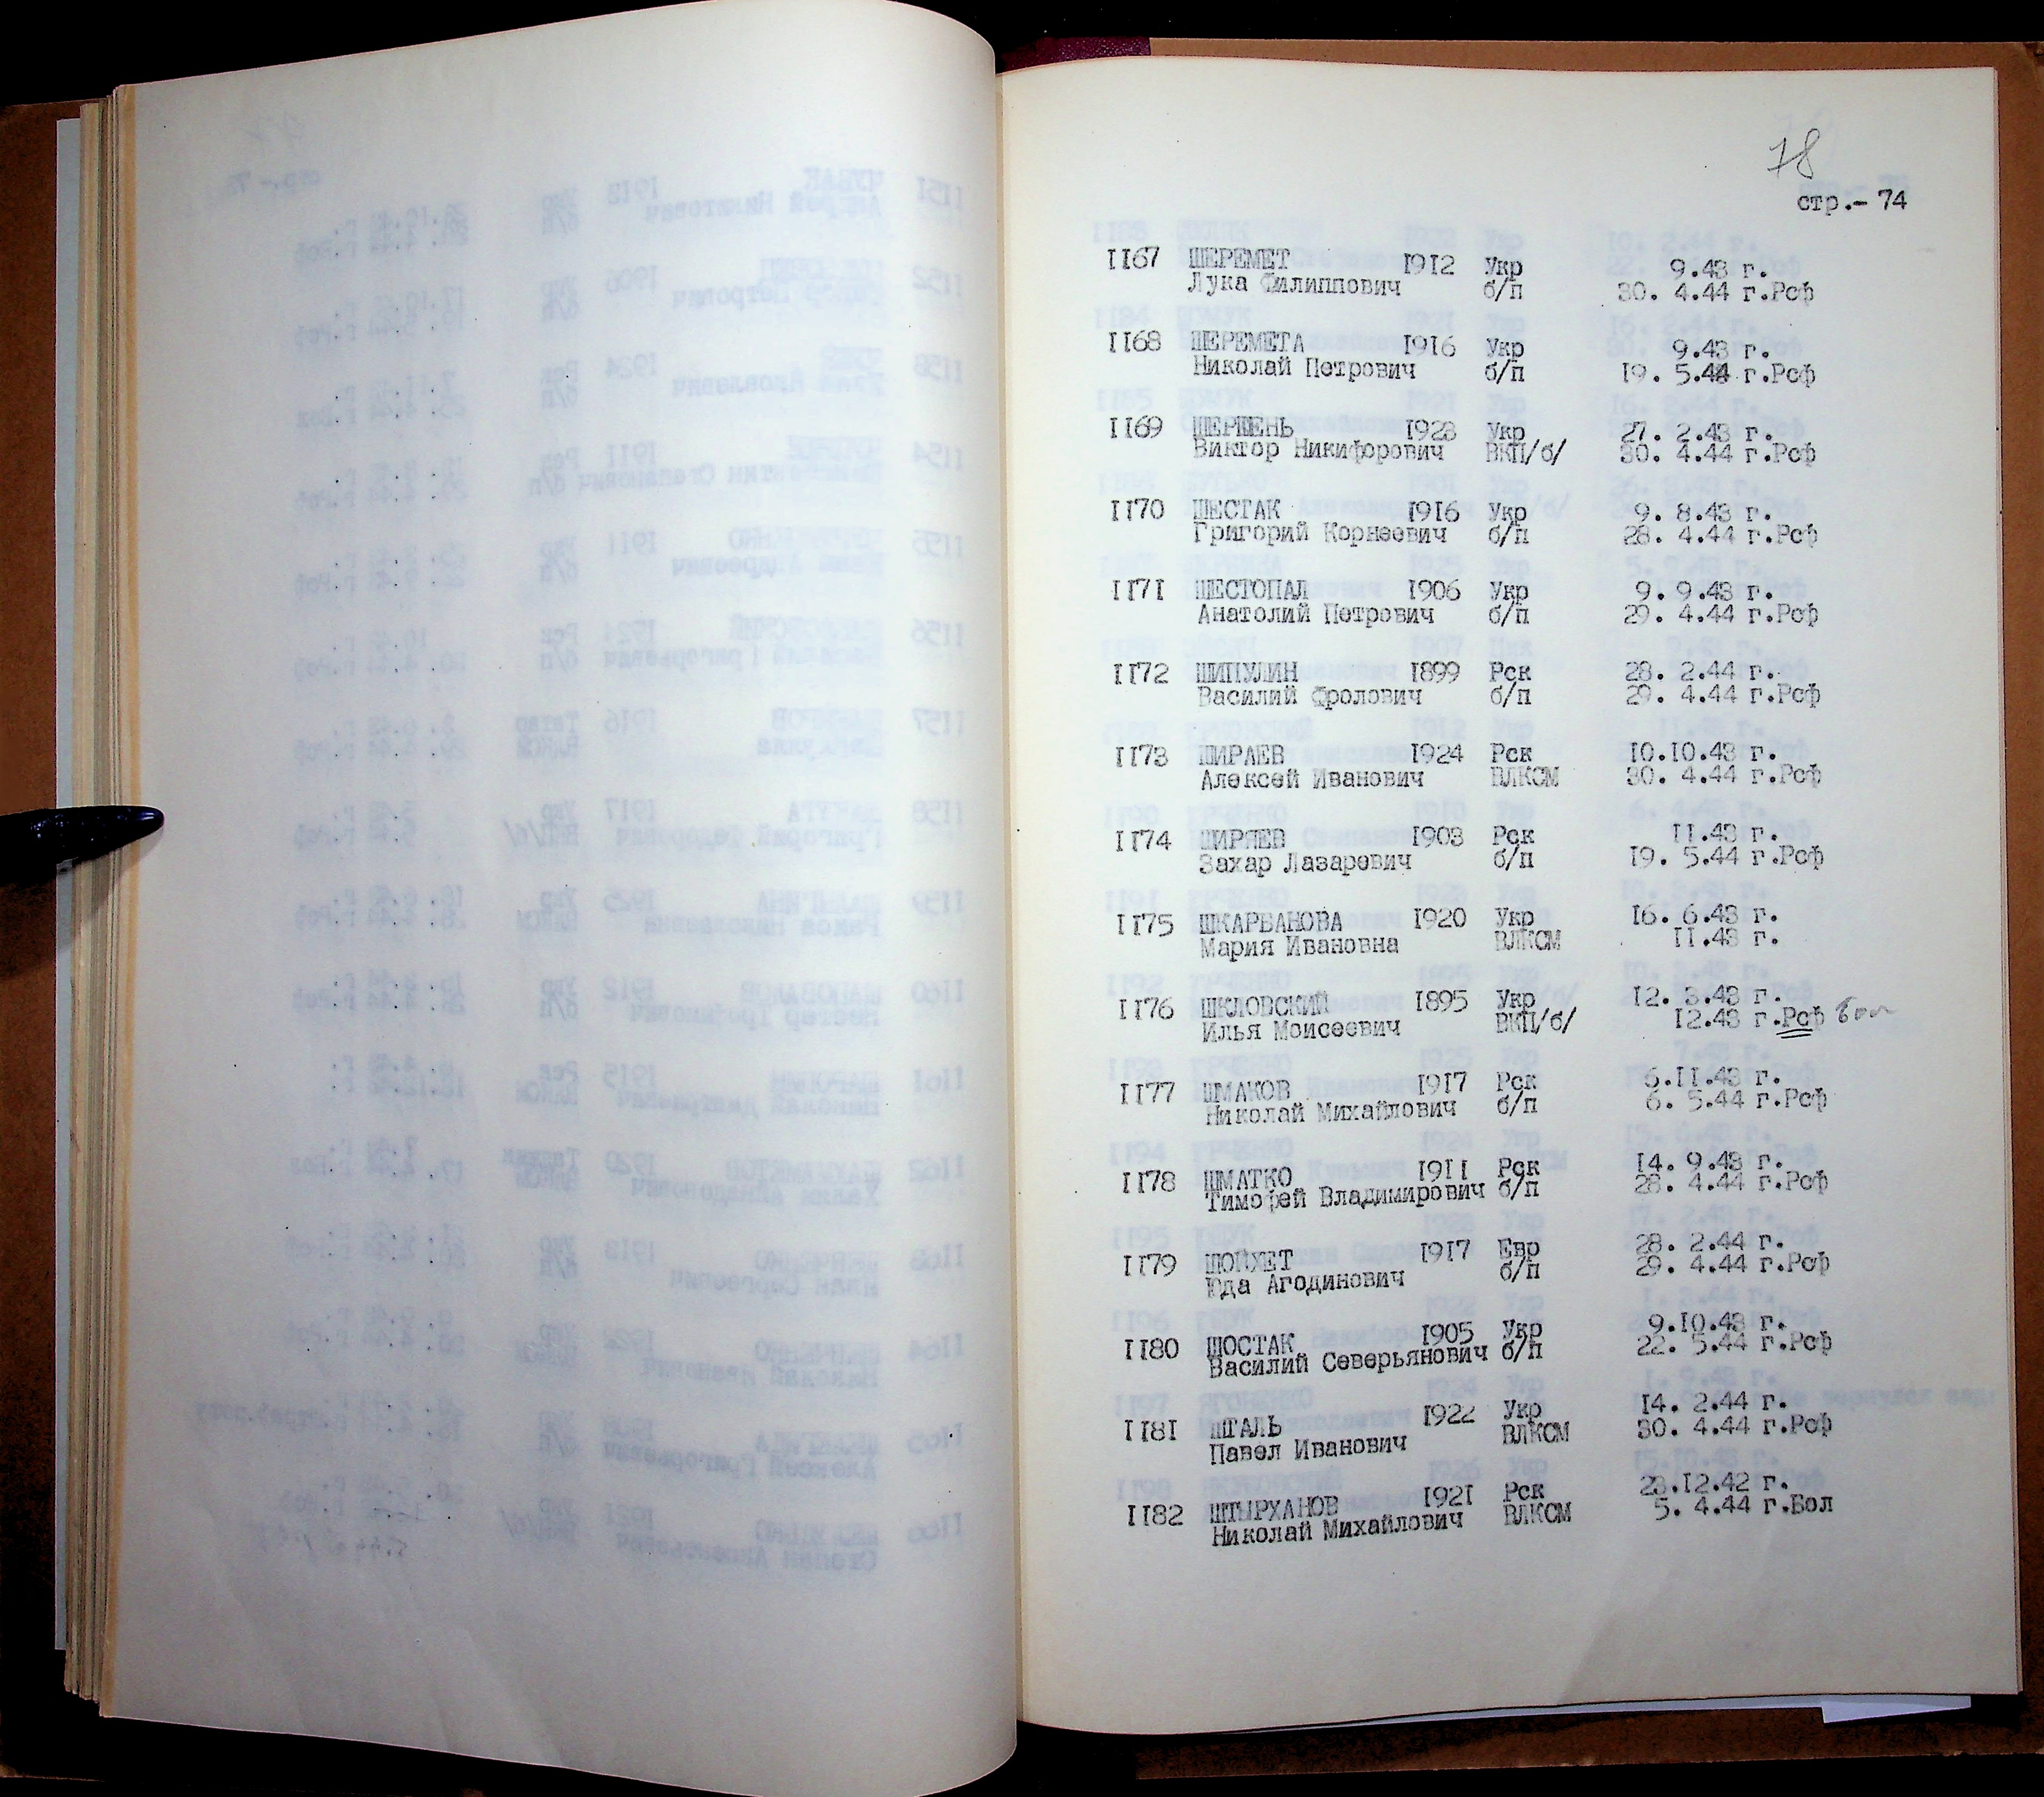 78
стр.- 74
1167 ШЕРЕМЕТ 1912 Укр 9.43 г.
Лука Филиппович б/п 30. 4.44 г.Рсф
1168 ШЕРЕМЕТА 1916 Укр 9.43 г.
Николай Петрович б/п 19. 5.44 г.Рсф
1169 ШЕРШЕНЬ 1923 Укр 27. 2.43 г.
Виктор Никифорович ВКП/б/ 30. 4.44 г.Рсф
1170 ШЕСТАК 1916 Укр 9. 8.43 г.
Григорий Корнеевич б/п 28. 4.44 г.Рсф
1171 ШЕСТОПАЛ 1906 Укр 9. 9.43 г.
Анатолий Петрович б/п 29. 4.44 г.Рсф
1172 ШИПУЛИН 1899 Рск 28. 2.44 г.
Василий Фролович б/п 29. 4.44 г.Рсф
1173 ШИРАЕВ 1924 Рск 10.10.43 г.
Алексей Иванович ВЛКСМ 30. 4.44 г.Рсф
1174 ШИРЯЕВ 1903 Рск 11.43 г.
Захар Лазаревич б/п 19. 5.44 г.Рсф
1175 ШКАРБАНОВА 1920 Укр 16. 6.43 г.
Мария Ивановна ВЛКСМ 11.43 г.
1176 ШКЛОВСКИЙ 1895 Укр 12. 3.43 г.
Илья Моисеевич ВКП/б/ 12.43 г.Рсф
1177 ШМАКОВ 1917 Рск 6.11.43 г.
Николай Михайлович б/п 6. 5.44 г.Рсф
1178 ШМАТКО 1911 Рск 14. 9.43 г.
Тимофей Владимирович б/п 28. 4.44 г.Рсф
1179 ШОЙХЕТ 1917 Евр 28. 2.44 г.
Юда Агодинович б/п 29. 4.44 г.Рсф
1180 ШОСТАК 1905 Укр 9.10.43 г.
Василий Северьянович б/п 22. 5.44 г.Рсф
1181 ШТАЛЬ 1922 Укр 14. 2.44 г.
Павел Иванович ВЛКСМ 30. 4.44 г.Рсф
1182 ШТЫРХАНОВ 1921 Рск 23.12.42 г.
Николай Михайлович ВЛКСМ 5. 4.44 г.Бол